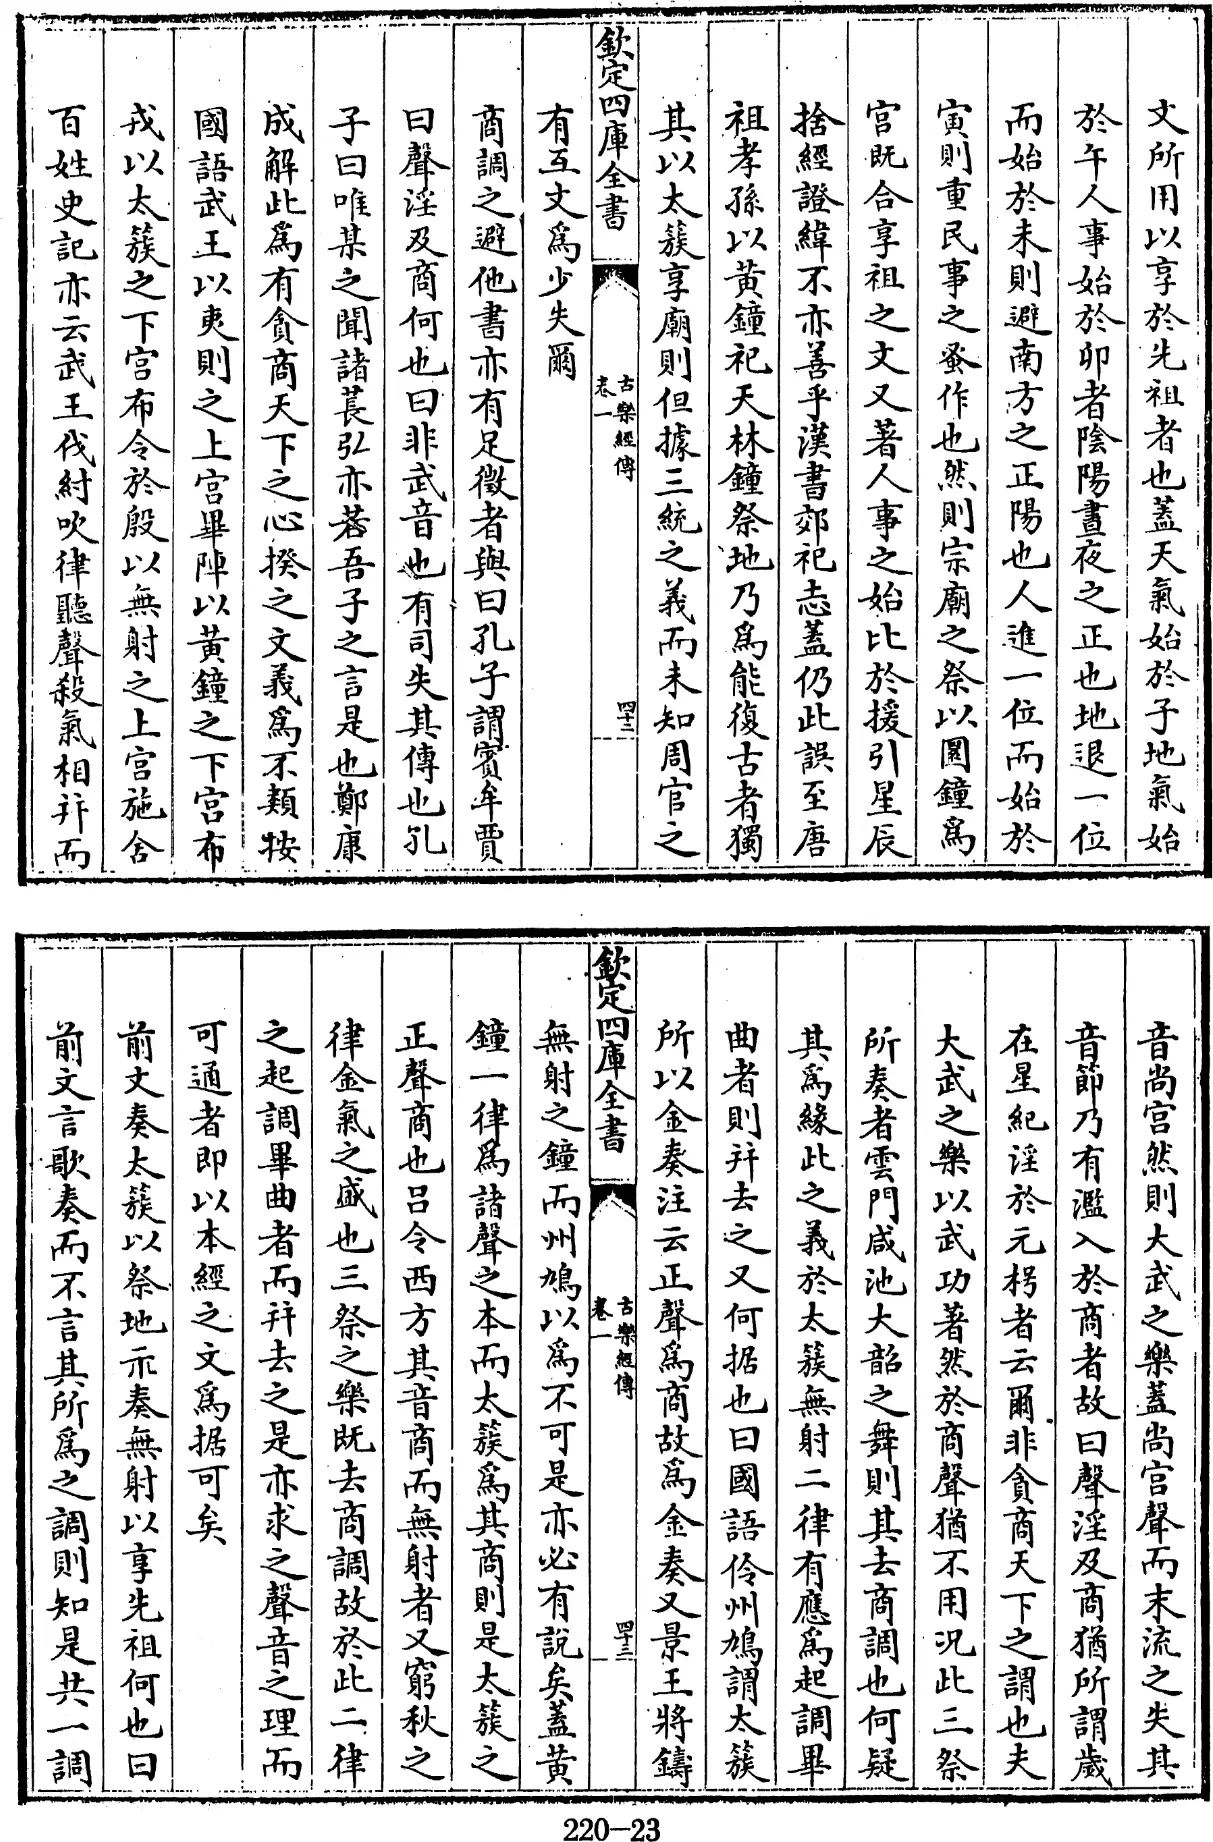 文所用以享於先祖者也蓋天氣始於子地氣始
於午人事始於卯者陰陽晝夜之正也地退一位
而始於未則避南方之正陽也人進一位而始於
寅則重民事之蚤作也然則宗廟之祭以圜鐘爲
宮既合享祖之文又著人事之始比於援引星辰
捨經證緯不亦善乎漢書郊祀志蓋仍此誤至唐
祖孝孫以黃鐘祀天林鐘祭地乃爲能復古者獨
其以太簇享廟則但據三統之義而未知周官之
欽定四庫全書
古樂經傳
卷一
四十二
有互文爲少失爾
商調之避他書亦有足徵者與曰孔子謂賓牟賈
曰聲淫及商何也曰非武音也有司失其傳也孔
子曰唯某之聞諸萇弘亦若吾子之言是也鄭康
成解此爲有貪商天下之心揆之文義爲不類按
國語武王以夷則之上宮畢陣以黃鐘之下宮布
戎以太簇之下宮布令於殷以無射之上宮施舍
百姓史記亦云武王伐紂吹律聽聲殺氣相并而
音尚宮然則大武之樂蓋尚宮聲而末流之失其
音節乃有濫入於商者故曰聲淫及商猶所謂歲
在星紀淫於元枵者云爾非貪商天下之謂也夫
大武之樂以武功著然於商聲猶不用况此三祭
所奏者雲門咸池大韶之舞則其去商調也何疑
其爲緣此之義於太簇無射二律有應爲起調畢
曲者則并去之又何据也曰國語伶州鳩謂太簇
所以金奏注云正聲爲商故爲金奏又景王將鑄
欽定四庫全書
古樂經傳
卷一
四十三
無射之鐘而州鳩以爲不可是亦必有說矣蓋黃
鐘一律爲諸聲之本而太簇爲其商則是太簇之
正聲商也呂令西方其音商而無射者又窮秋之
律金氣之盛也三祭之樂既去商調故於此二律
之起調畢曲者而并去之是亦求之聲音之理而
可通者即以本經之文爲据可矣
前文奏太簇以祭地示奏無射以享先祖何也曰
前文言歌奏而不言其所爲之調則知是共一調
220—23